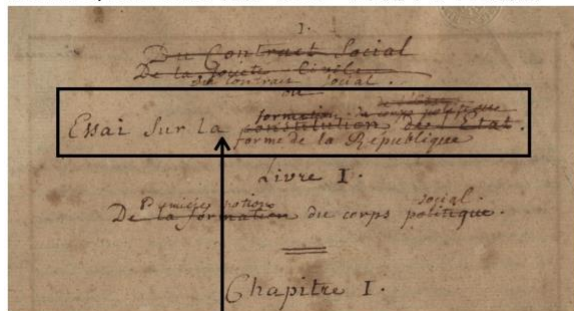 1.
Du Contract Social
De la Societé Civile
du contract social.
ou
de l'Etat
formation du corps politique
Essai sur la constitution de l'Etat.
forme de la République
Livre I.
Premieres notions social.
De la formation du corps politique.
Chapitre I.